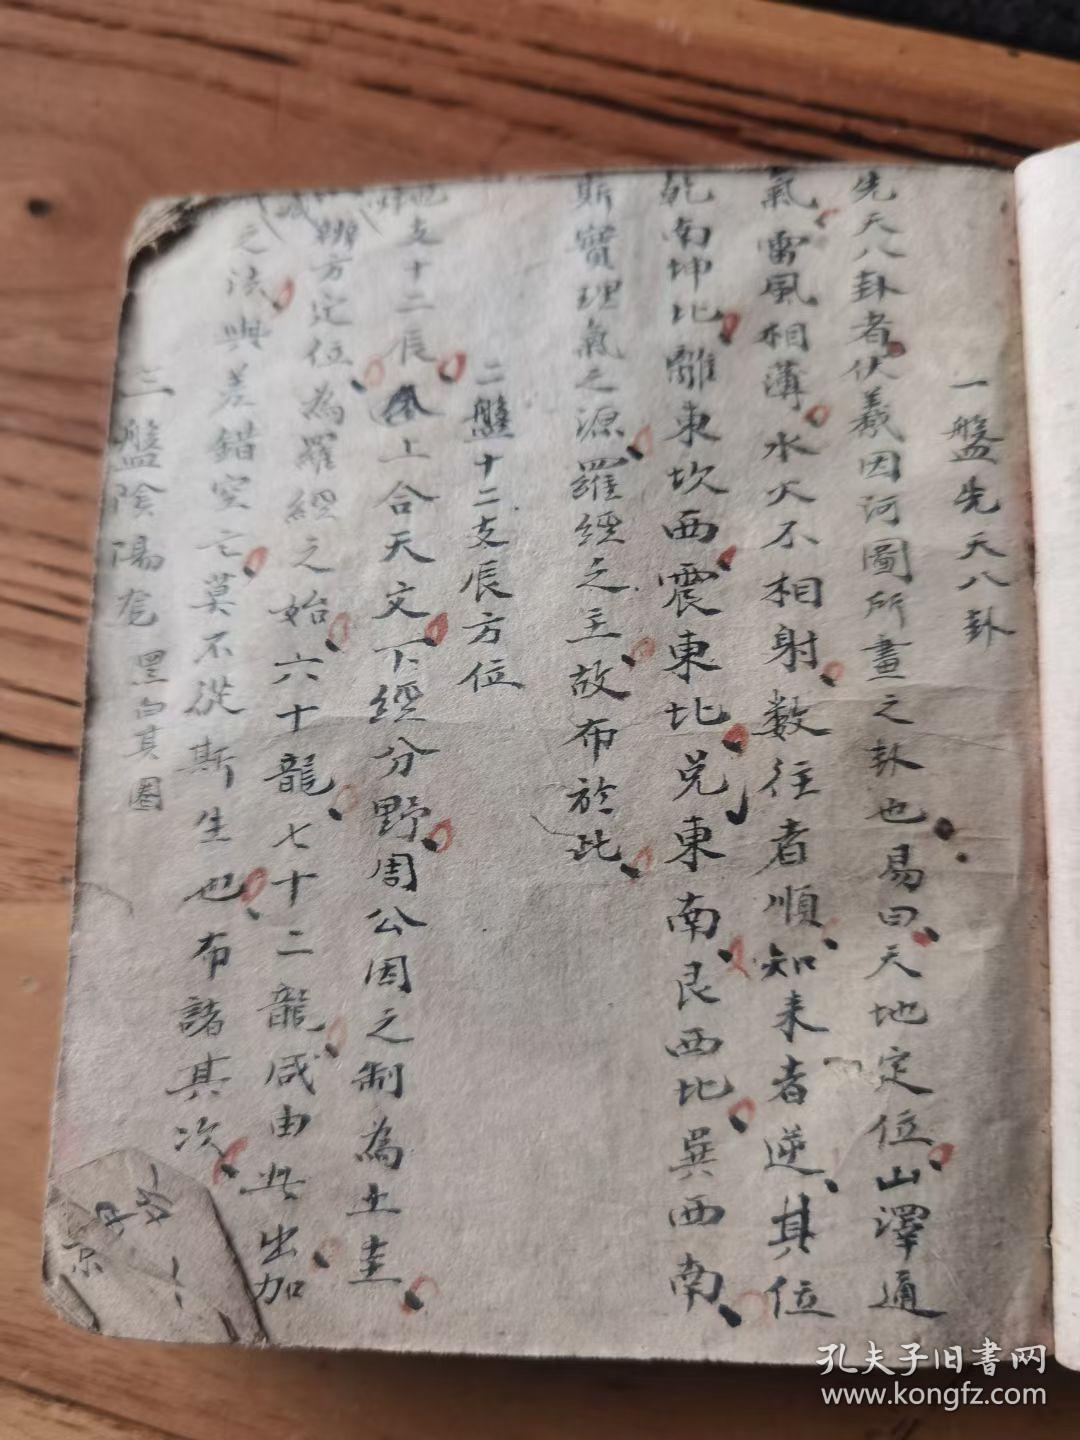 一盤先天八卦
先天八卦者伏羲因河圖所畫之卦也易曰天地定位山澤通
氣雷風相薄水火不相射数往者順知来者逆其位
乾南坤北離東坎西震東北兑東南艮西北巽西南
斯實理氣之源羅經之主故布於此
二盤十二支辰方位
地支十二辰上合天文下經分野周公因之制為土圭
辨方定位為羅經之始六十龍七十二龍咸由此出加
之法與差錯空亡莫不從斯生也布諸其次
三盤陰陽龙黑白其圈
京
孔夫子旧書网
www.kongfz.com